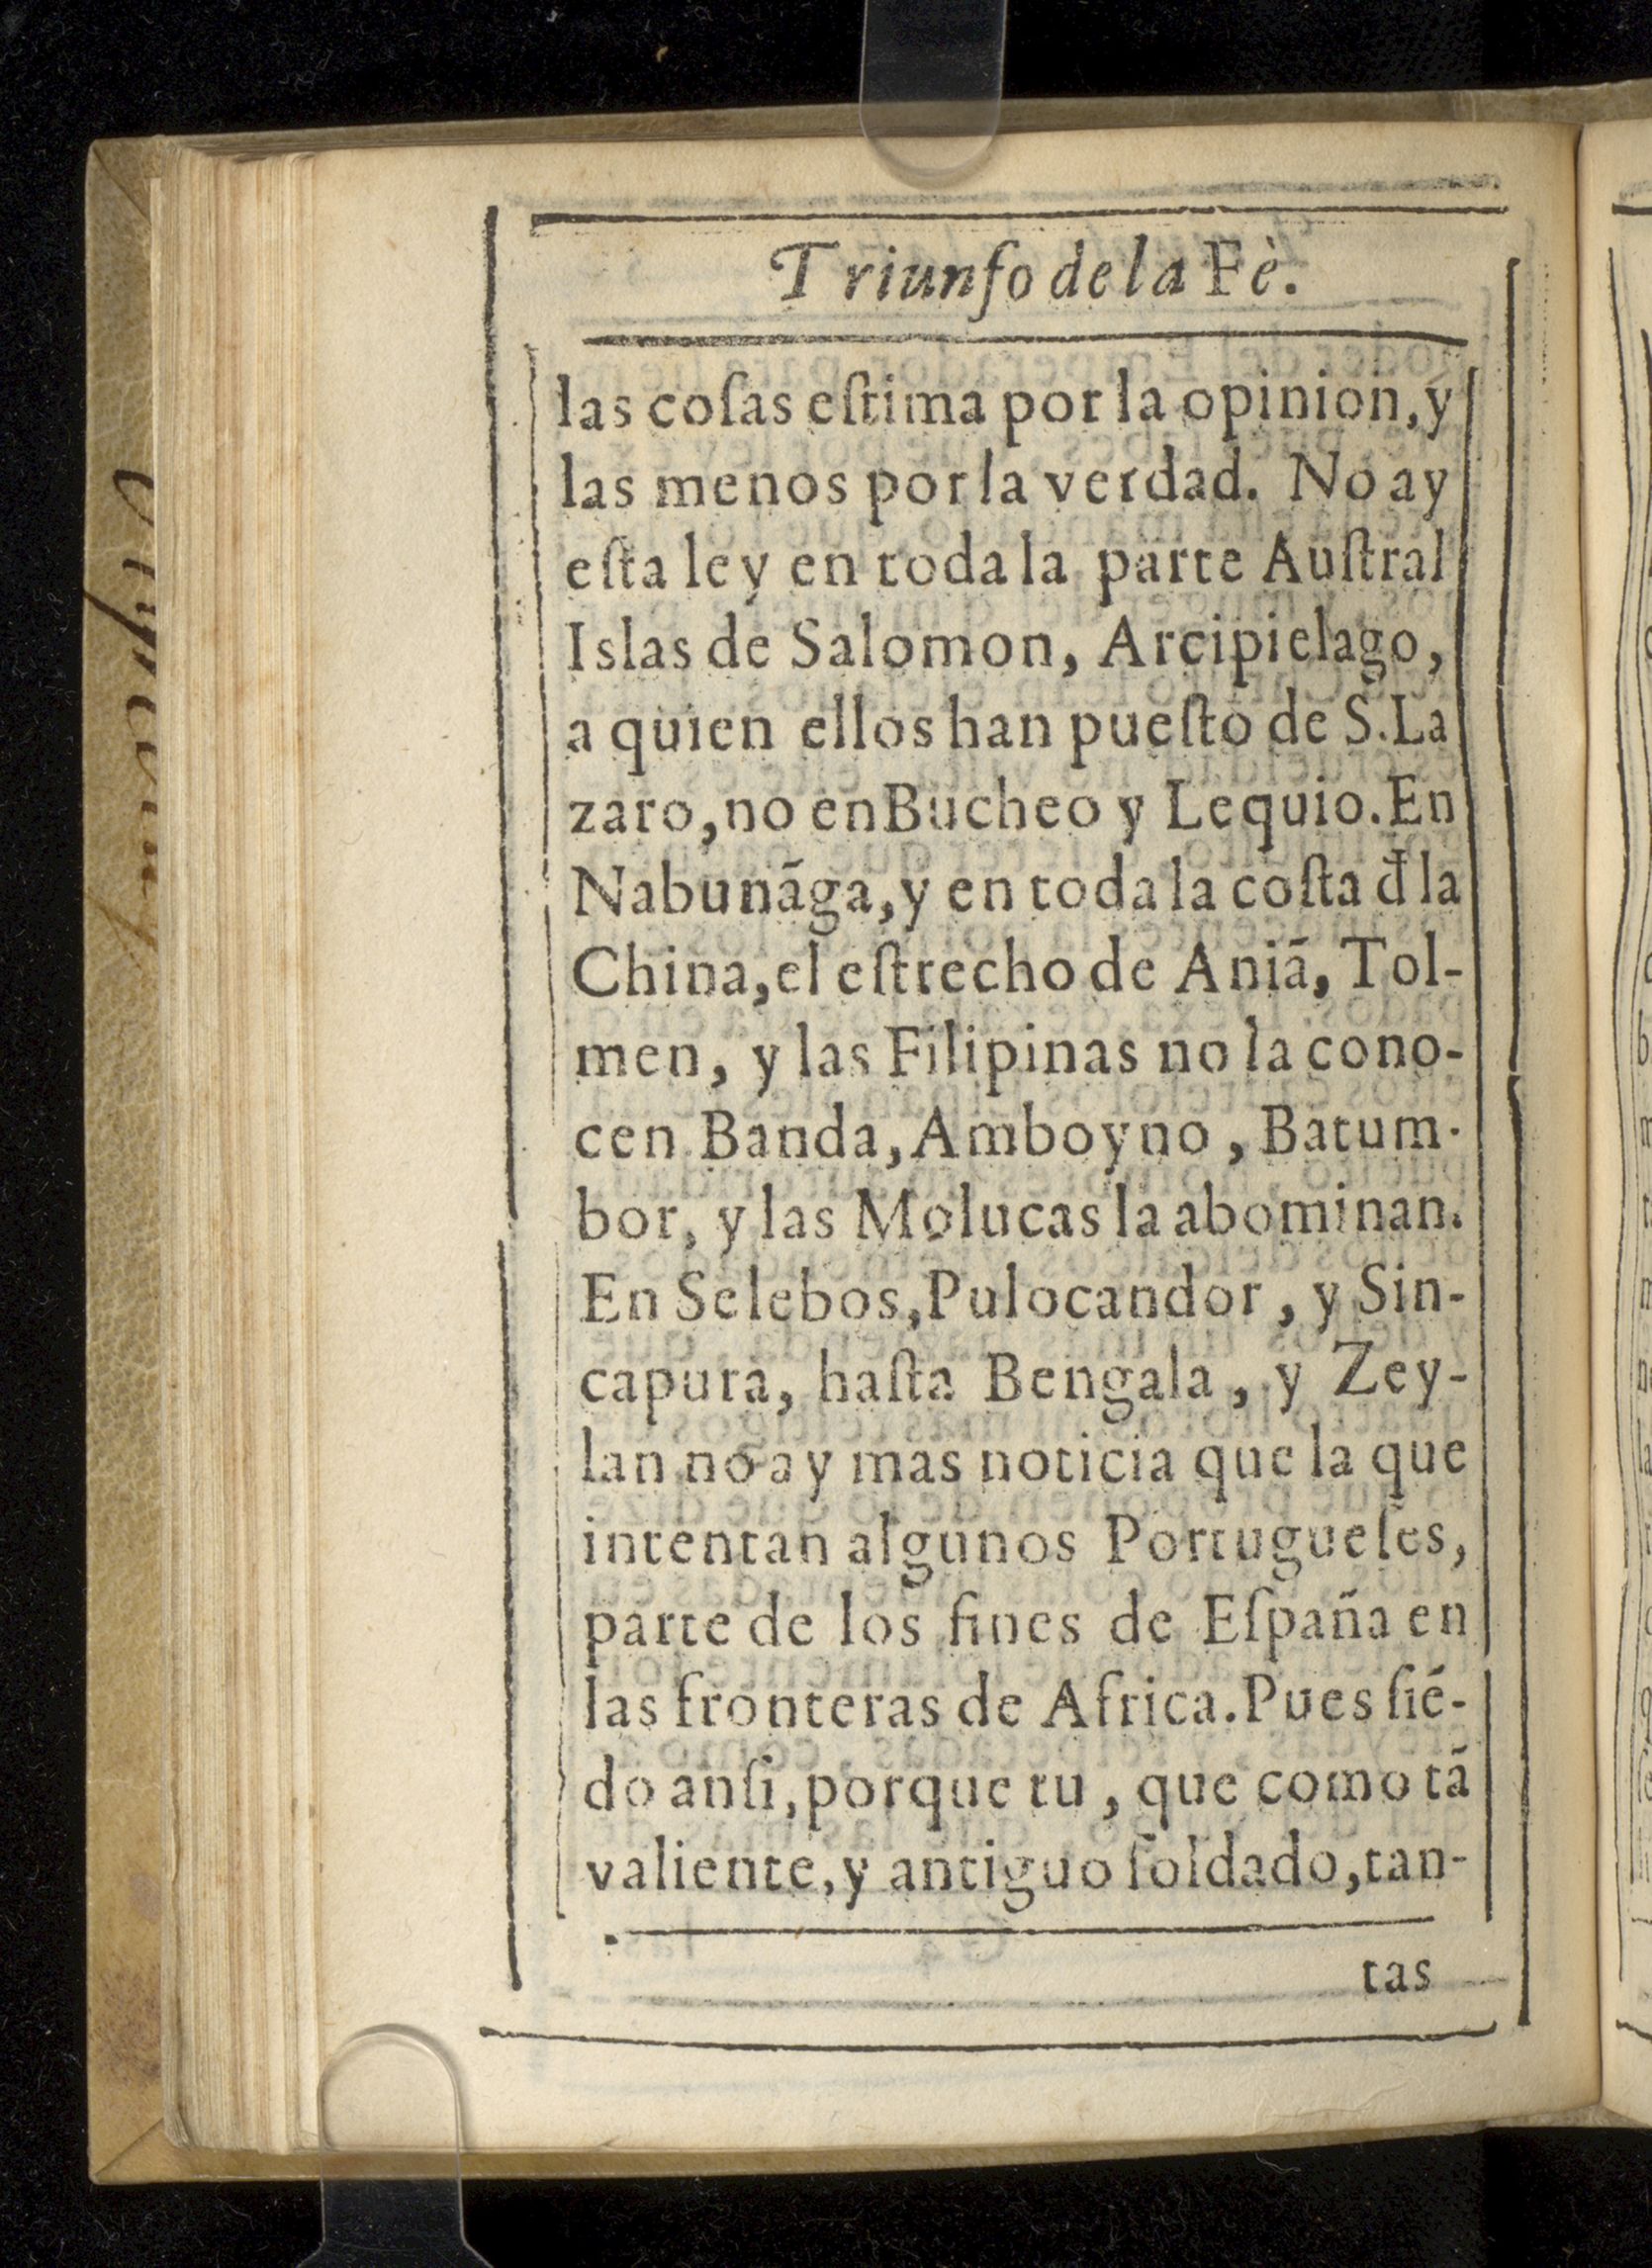 Triunfo de la Fè.
las coſas eſtima por la opinion, y
las menos por la verdad. No ay
eſta ley en toda la parte Auſtral
Islas de Salomon, Arcipielago,
a quien ellos han pueſto de S. La
zaro, no en Bucheo y Lequio. En
Nabunãga, y en toda la coſta đ la
China, el eſtrecho de Aniã, Tol-
men, y las Filipinas no la cono-
cen Banda, Amboyno, Batum-
bor, y las Molucas la abominan.
En Selebos, Pulocandor, y Sin-
capura, haſta Bengala, y Zey-
lan no ay mas noticia que la que
intentan algunos Portugueſes,
parte de los fines de Eſpaña en
las fronteras de Africa. Pues ſiẽ-
do anſi, porque tu, que como tã
valiente, y antiguo ſoldado, tan-
tas